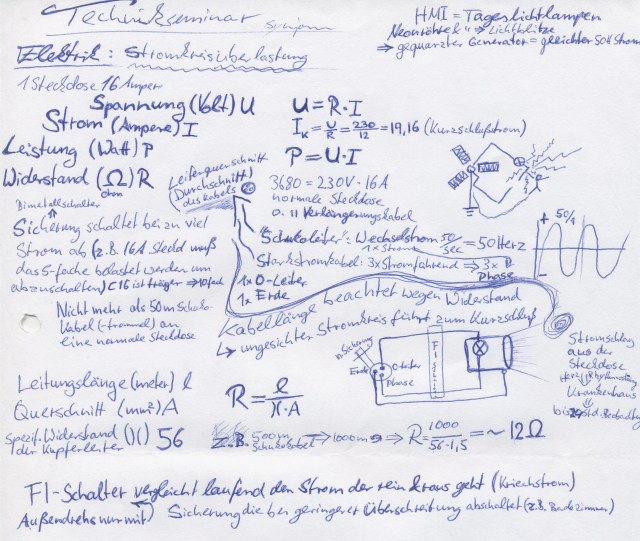 Technikseminar
HMI = Tageslichtlampen
Neonröhre & " → Lichtblitze
→ gequarzter Generator = gleichter 50H Strom
Elektrik: Stromkreisüberlastung
1 Steckdose 16 Amper
Spannung (Volt) U
U = R·I
Strom (Ampere) I
I_K = U/R = 230/12 = 19,16 (Kurzschlußstrom)
Leistung (Watt) P
P = U·I
Widerstand (Ω) R
Ohm
Leiterquerschnitt
(Durchschnitt)
des Kabels
3680 = 230V · 16A
normale Steckdose
o. 11 Verlängerungskabel
Bimetallschalter
Sicherung schaltet bei zu viel
Strom ab (z.B. 16A Steckd muß
das 5-fache belastet werden um
abzuschalten) C16 ist träger → 10fach
"Schukoleiter": Wechselstrom 50/sec = 50 Herz
1x Strom
+ 50/1
Starkstromkabel: 3x Stromführend → 3x P
Phase
1x 0-Leiter
1x Erde
Nicht mehr als 50m Schuko-
Kabel (-trommel) an
eine normale Steckdose
Kabellänge beachtet wegen Widerstand
↳ ungesichter Stromkreis führt zum Kurzschluß
Sicherung
Erde
0-leiter
Phase
FI-Schalter
Stromschlag
aus der
Steckdose
Krankenhaus
Leitungslänge (meter) l
Querschnitt (mm²) A
spezif. Widerstand (ϰ) 56
der Kupferleiter
R = l/ϰ·A
z.B. 500m → 1000m → R = 1000/56·1,5 = ~ 12Ω
Schukokabel
FI-Schalter vergleicht laufend den Strom der rein & raus geht (Kriechstrom)
Außendrehs nur mit) Sicherung die bei geringerer Überschreitung abschaltet (z.B. Badezimmer)